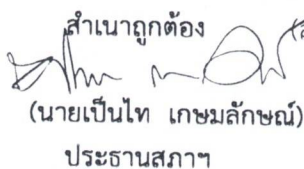 สำเนาถูกต้อง
(นายเป็นไท เกษมลักษณ์)
ประธานสภาฯ